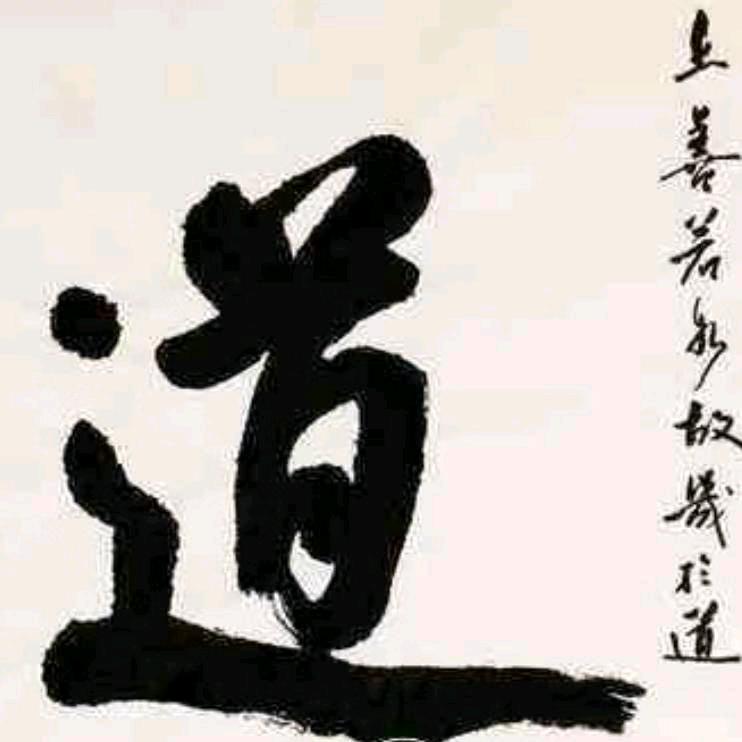 上善若水故幾於道
道